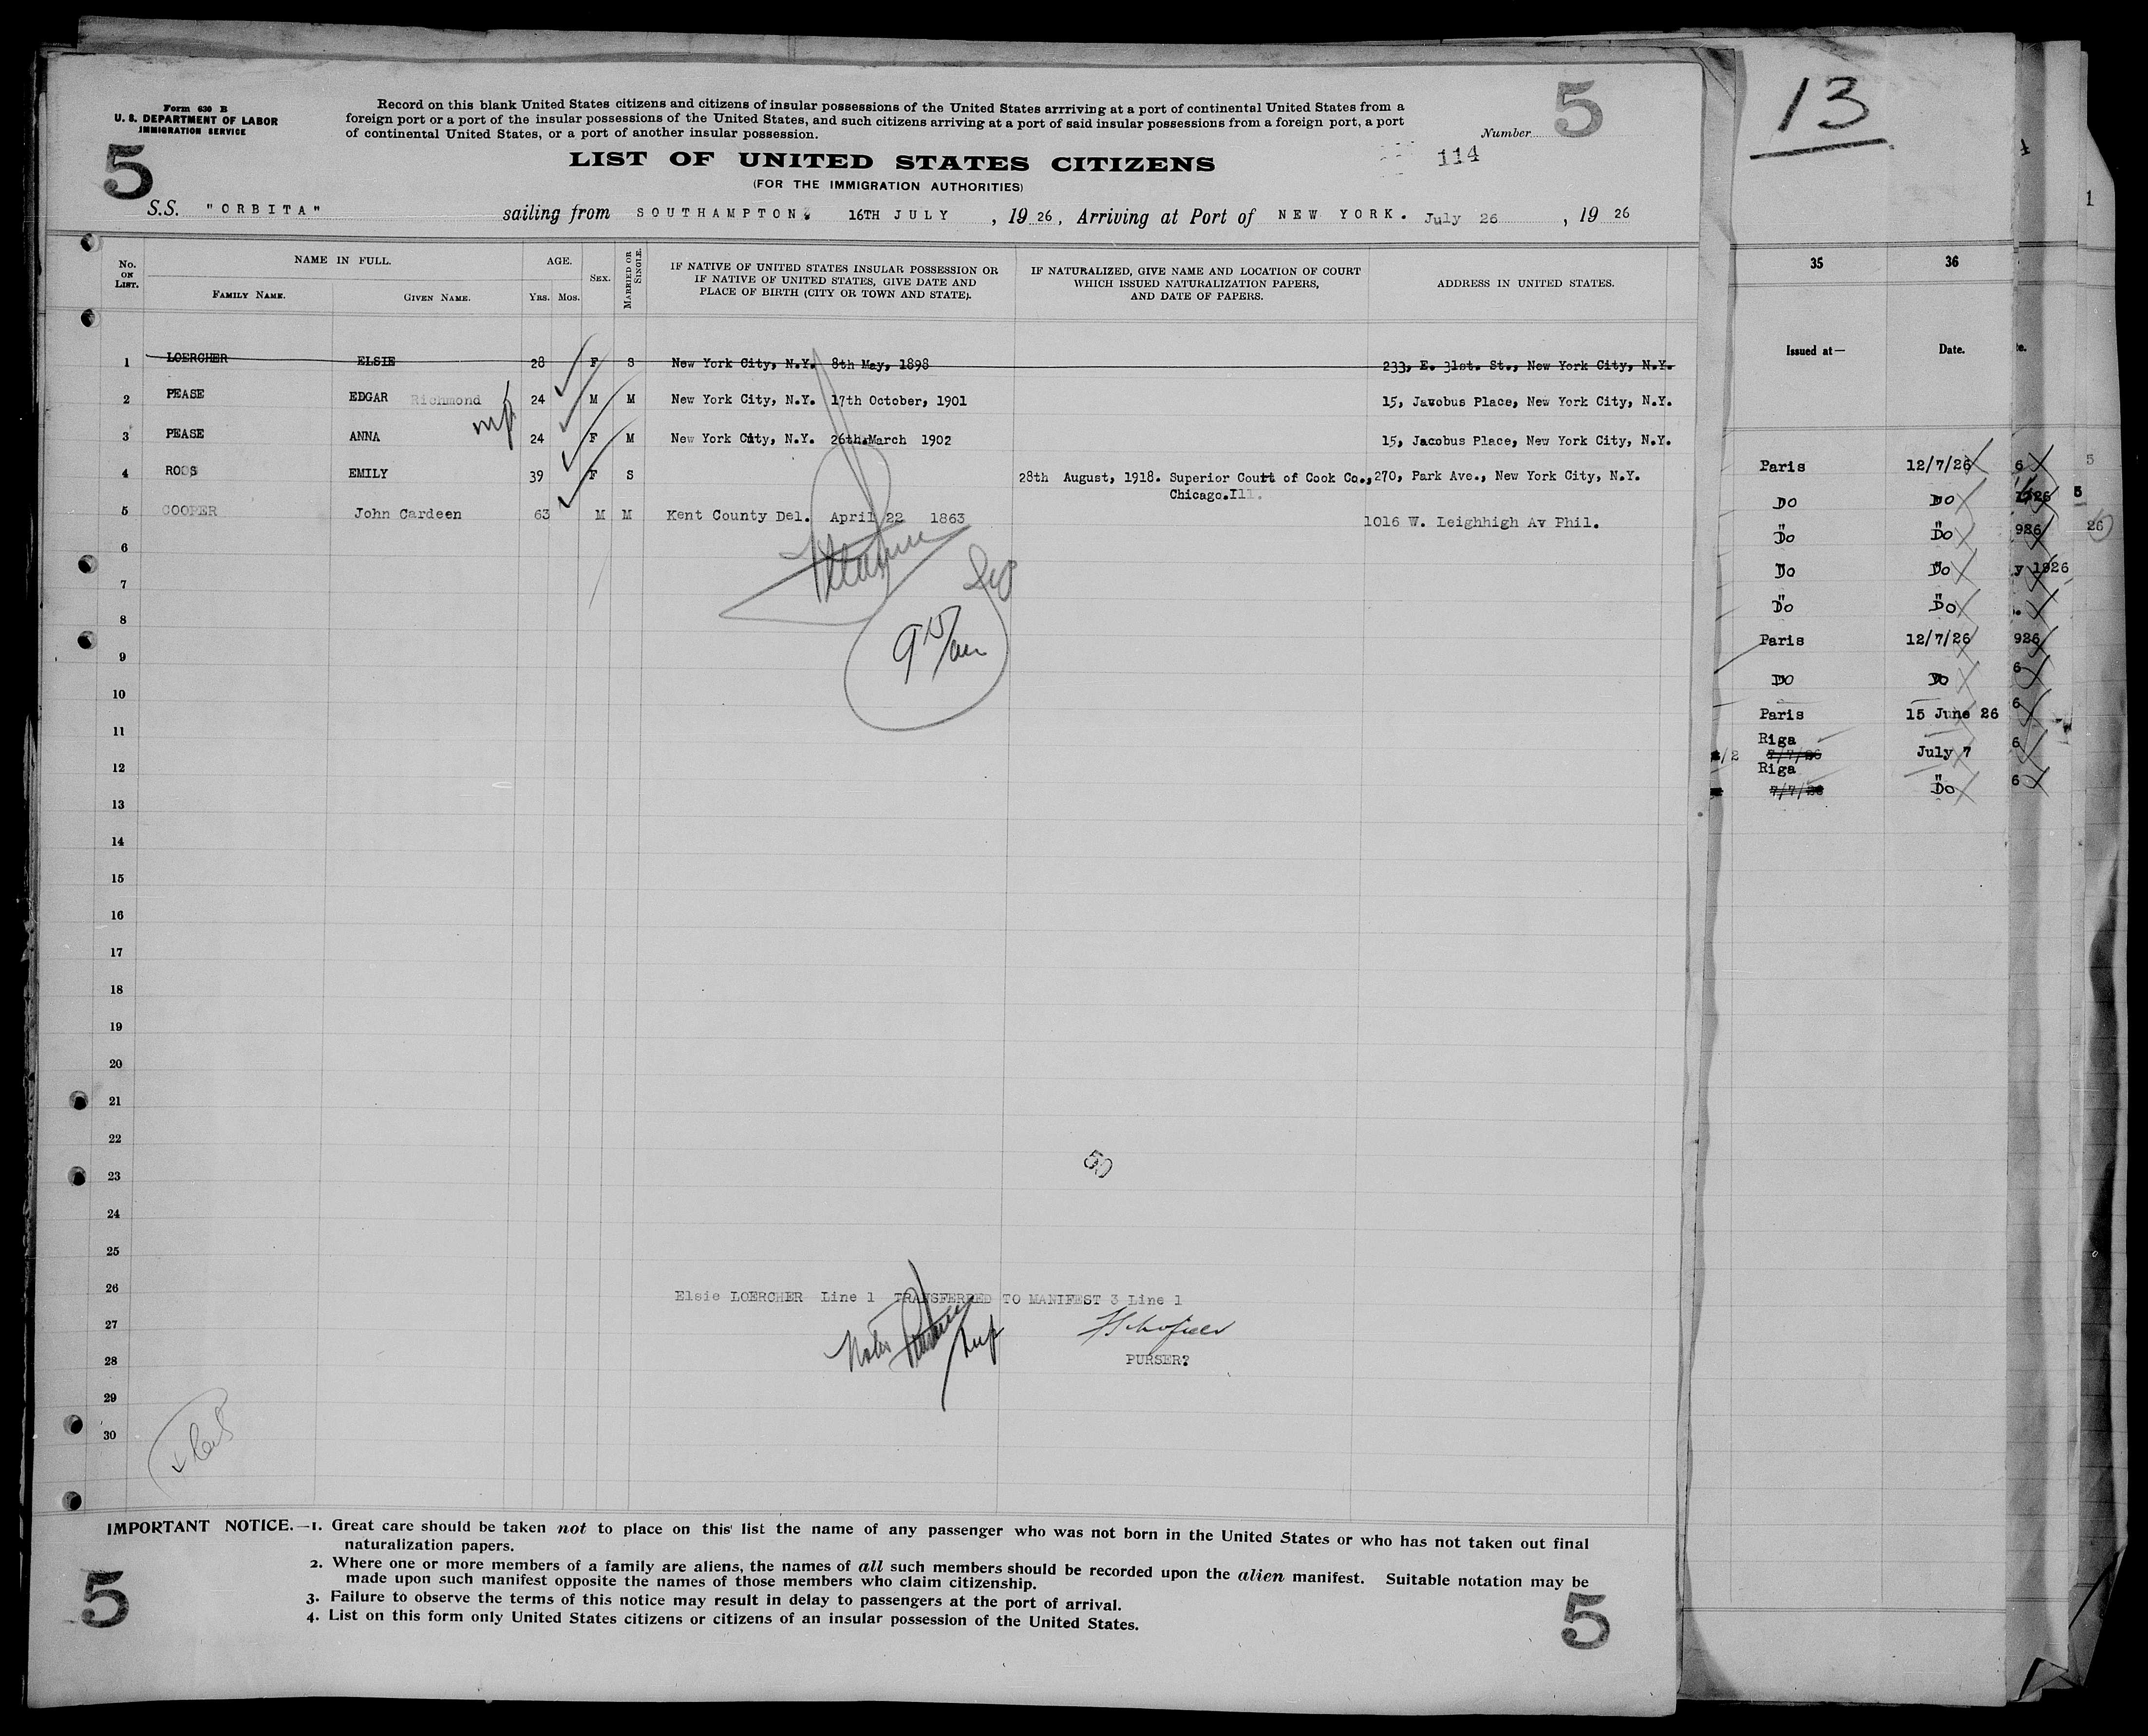 Form 630 B
U. S. DEPARTMENT OF LABOR
IMMIGRATION SERVICE
Record on this blank United States citizens and citizens of insular possessions of the United States arrriving at a port of continental United States from a
foreign port or a port of the insular possessions of the United States, and such citizens arriving at a port of said insular possessions from a foreign port, a port
of continental United States, or a port of another insular possession.
Number 5
5
114
LIST OF UNITED STATES CITIZENS
(FOR THE IMMIGRATION AUTHORITIES)
S.S. "ORBITA" sailing from SOUTHAMPTON, 16TH JULY, 1926, Arriving at Port of NEW YORK. July 26, 1926
No. ON LIST.
NAME IN FULL.
FAMILY NAME. GIVEN NAME.
AGE.
Yrs. Mos.
SEX.
MARRIED OR SINGLE.
IF NATIVE OF UNITED STATES INSULAR POSSESSION OR
IF NATIVE OF UNITED STATES, GIVE DATE AND
PLACE OF BIRTH (CITY OR TOWN AND STATE).
IF NATURALIZED, GIVE NAME AND LOCATION OF COURT
WHICH ISSUED NATURALIZATION PAPERS,
AND DATE OF PAPERS.
ADDRESS IN UNITED STATES.
1 LOERCHER ELSIE 28 F S New York City, N.Y. 8th May, 1898 233, E. 31st. St., New York City, N.Y.
2 PEASE EDGAR Richmond 24 M M New York City, N.Y. 17th October, 1901 15, Javobus Place, New York City, N.Y.
3 PEASE ANNA 24 F M New York City, N.Y. 26th March 1902 15, Jacobus Place, New York City, N.Y.
4 ROOS EMILY 39 F S 28th August, 1918. Superior Court of Cook Co., 270, Park Ave., New York City, N.Y.
Chicago.Ill.
5 COOPER John Cardeen 63 M M Kent County Del. April 22 1863 1016 W. Leighhigh Av Phil.
6
7
8
9
9 15/am
10
11
12
13
14
15
16
17
18
19
20
21
22
23
50
24
25
26
Elsie LOERCHER Line 1 TRANSFERRED TO MANIFEST 3 Line 1
27
28
PURSER?
29
30
IMPORTANT NOTICE.—1. Great care should be taken not to place on this list the name of any passenger who was not born in the United States or who has not taken out final
naturalization papers.
2. Where one or more members of a family are aliens, the names of all such members should be recorded upon the alien manifest. Suitable notation may be
made upon such manifest opposite the names of those members who claim citizenship.
3. Failure to observe the terms of this notice may result in delay to passengers at the port of arrival.
4. List on this form only United States citizens or citizens of an insular possession of the United States.
5
5
13
35 36
Issued at— Date.
Paris 12/7/26
Do Do
"Do "Do
"Do "Do
"Do "Do
Paris 12/7/26
Do Do
Paris 15 June 26
Riga
7/7/26 July 7
Riga
7/7/26 "Do
te.
6
1926
926
y 1926
926
6
6
6
6
1
5
5
26